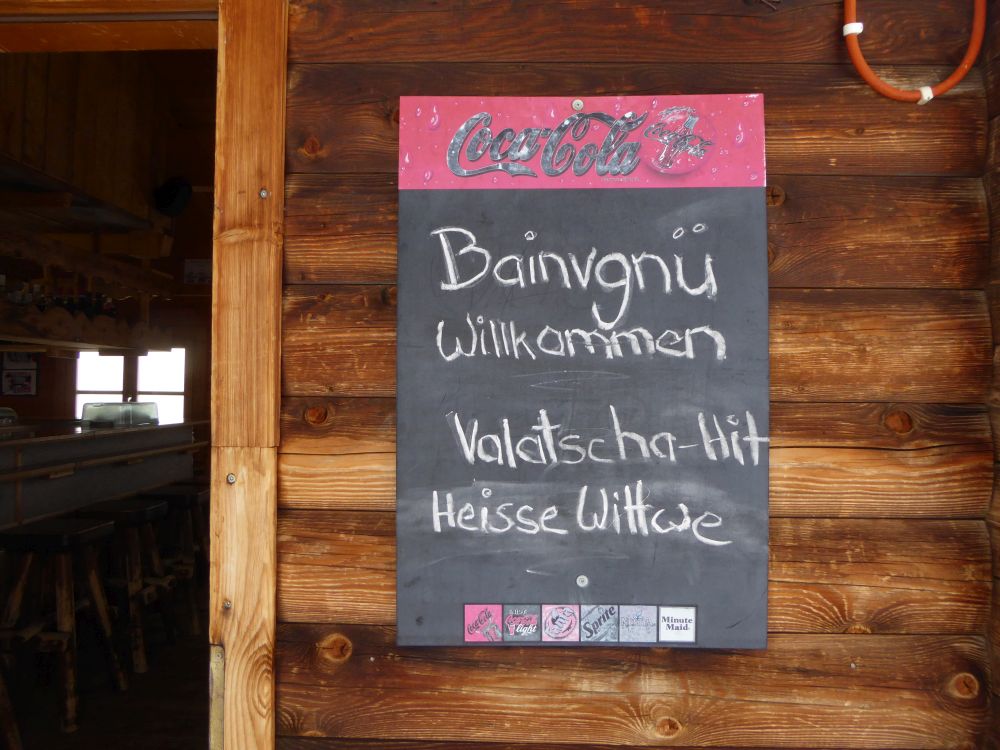 Coca-Cola
Bainvgnü
Willkommen
Valatscha-Hit
Heisse Wittwe
Coca-Cola light Sprite Minute Maid